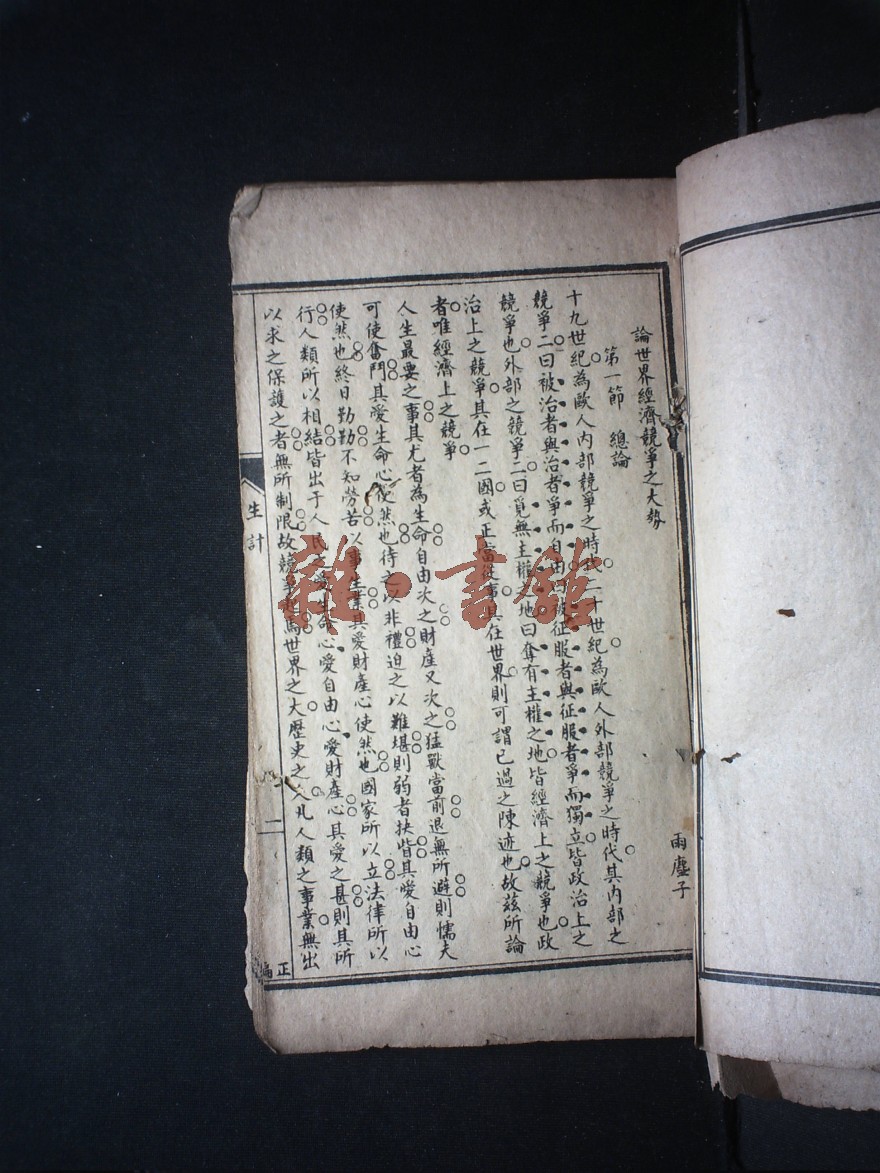 論世界經濟競爭之大勢
雨塵子
第一節　總論
十九世紀為歐人內部競爭之時代二十世紀為歐人外部競爭之時代其內部之
競爭二曰被治者與治者爭而自由曰被征服者與征服者爭而獨立皆政治上之
競爭也外部之競爭二曰覓無主權之地曰奪有主權之地皆經濟上之競爭也政
治上之競爭其在一二國或正當從事其在世界則可謂已過之陳迹也故茲所論
者唯經濟上之競爭
人生最要之事其尤者為生命自由次之財產又次之猛獸當前退無所避則懦夫
可使奮鬥其愛生命心使然也待之以非禮迫之以難堪則弱者抉眥其愛自由心
使然也終日勤勤不知勞苦以事生業其愛財產心使然也國家所以立法律所以
行人類所以相結皆出于人民之愛生命心愛自由心愛財產心其愛之甚則其所
以求之保護之者無所制限故競爭起焉世界之大歷史之久凡人類之事業無出
生計
二
正編
雜·書館